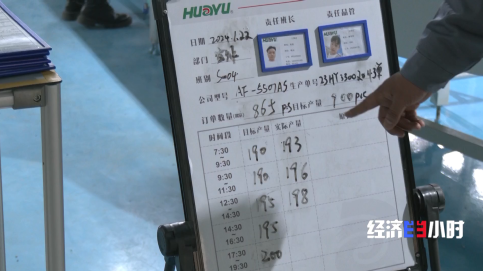 HUAYU.
责任班长 责任品管
日期 2024.1.22
部门
班别 S004
公司型号 AF-5507AS 生产单号 23HY33002043单
订单数量: 865 PS 目标产量 900 pcs
时间段 目标产量 实际产量
7:30 - 9:30 190 193
9:30 - 11:30 190 196
12:30 - 14:30 195 198
14:30 - 16:30 195
17:30 - 19:30 200
经济 小时